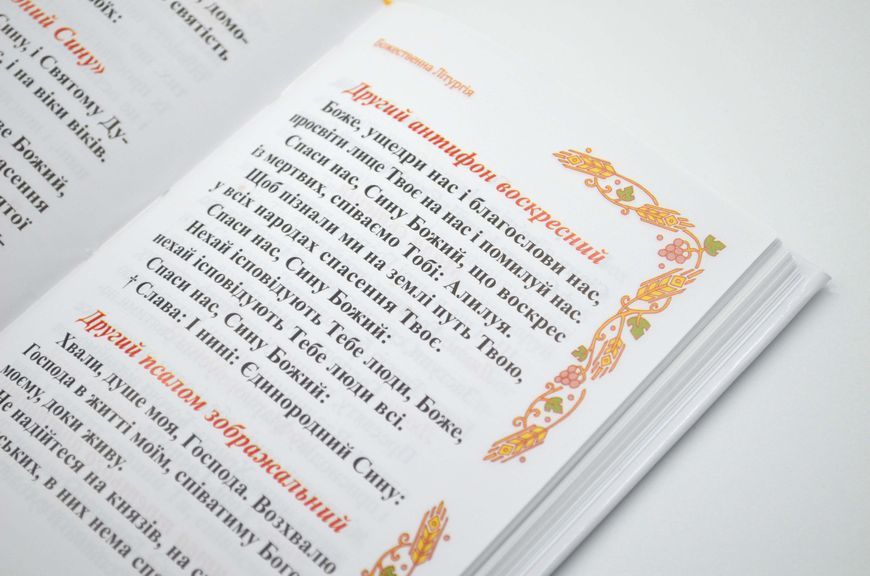 домо-
святість
воїх:
ний Сину»
Сину, і Святому Ду-
і на віки віків.
Божий,
спасення
Божественна Літургія
Другий антифон воскресний
Боже, ущедри нас і благослови нас,
просвіти лице Твоє на нас і помилуй нас.
Спаси нас, Сину Божий, що воскрес
із мертвих, співаємо Тобі: Алилуя.
Щоб пізнали ми на землі путь Твою,
у всіх народах спасення Твоє.
Спаси нас, Сину Божий:
Нехай ісповідують Тебе люди, Боже,
нехай ісповідують Тебе люди всі.
Спаси нас, Сину Божий:
† Слава: І нині: Єдинородний Сину:
Другий псалом зображальний
Хвали, душе моя, Господа. Возхвалю
Господа в житті моїм, співатиму Бого
моєму, доки живу.
Не надійтеся на князів, на с
ських, в них нема спа